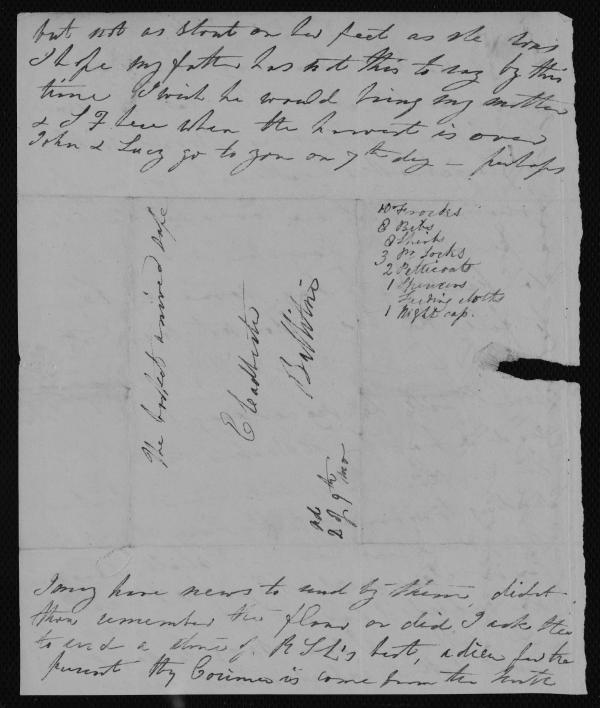 but not as stout on her feet as she was
I hope my father has not this to say by this
time I wish he would bring my mother
& S F here when the harvest is over
John & Lucy go to you on 7th day - perhaps
The basket arrived safe
10 Frocks
8 Bibs
8 Shirts
3 Pr Socks
2 Petticoats
1 Spencers
Feeding cloths
1 Night cap.
Ballitore
2 of 9th mo
I may have news to send by them, didst
thou remember the flour or did I ask thee
to send a stone of R S L's best, adieu for the
present thy Cousin is come from the